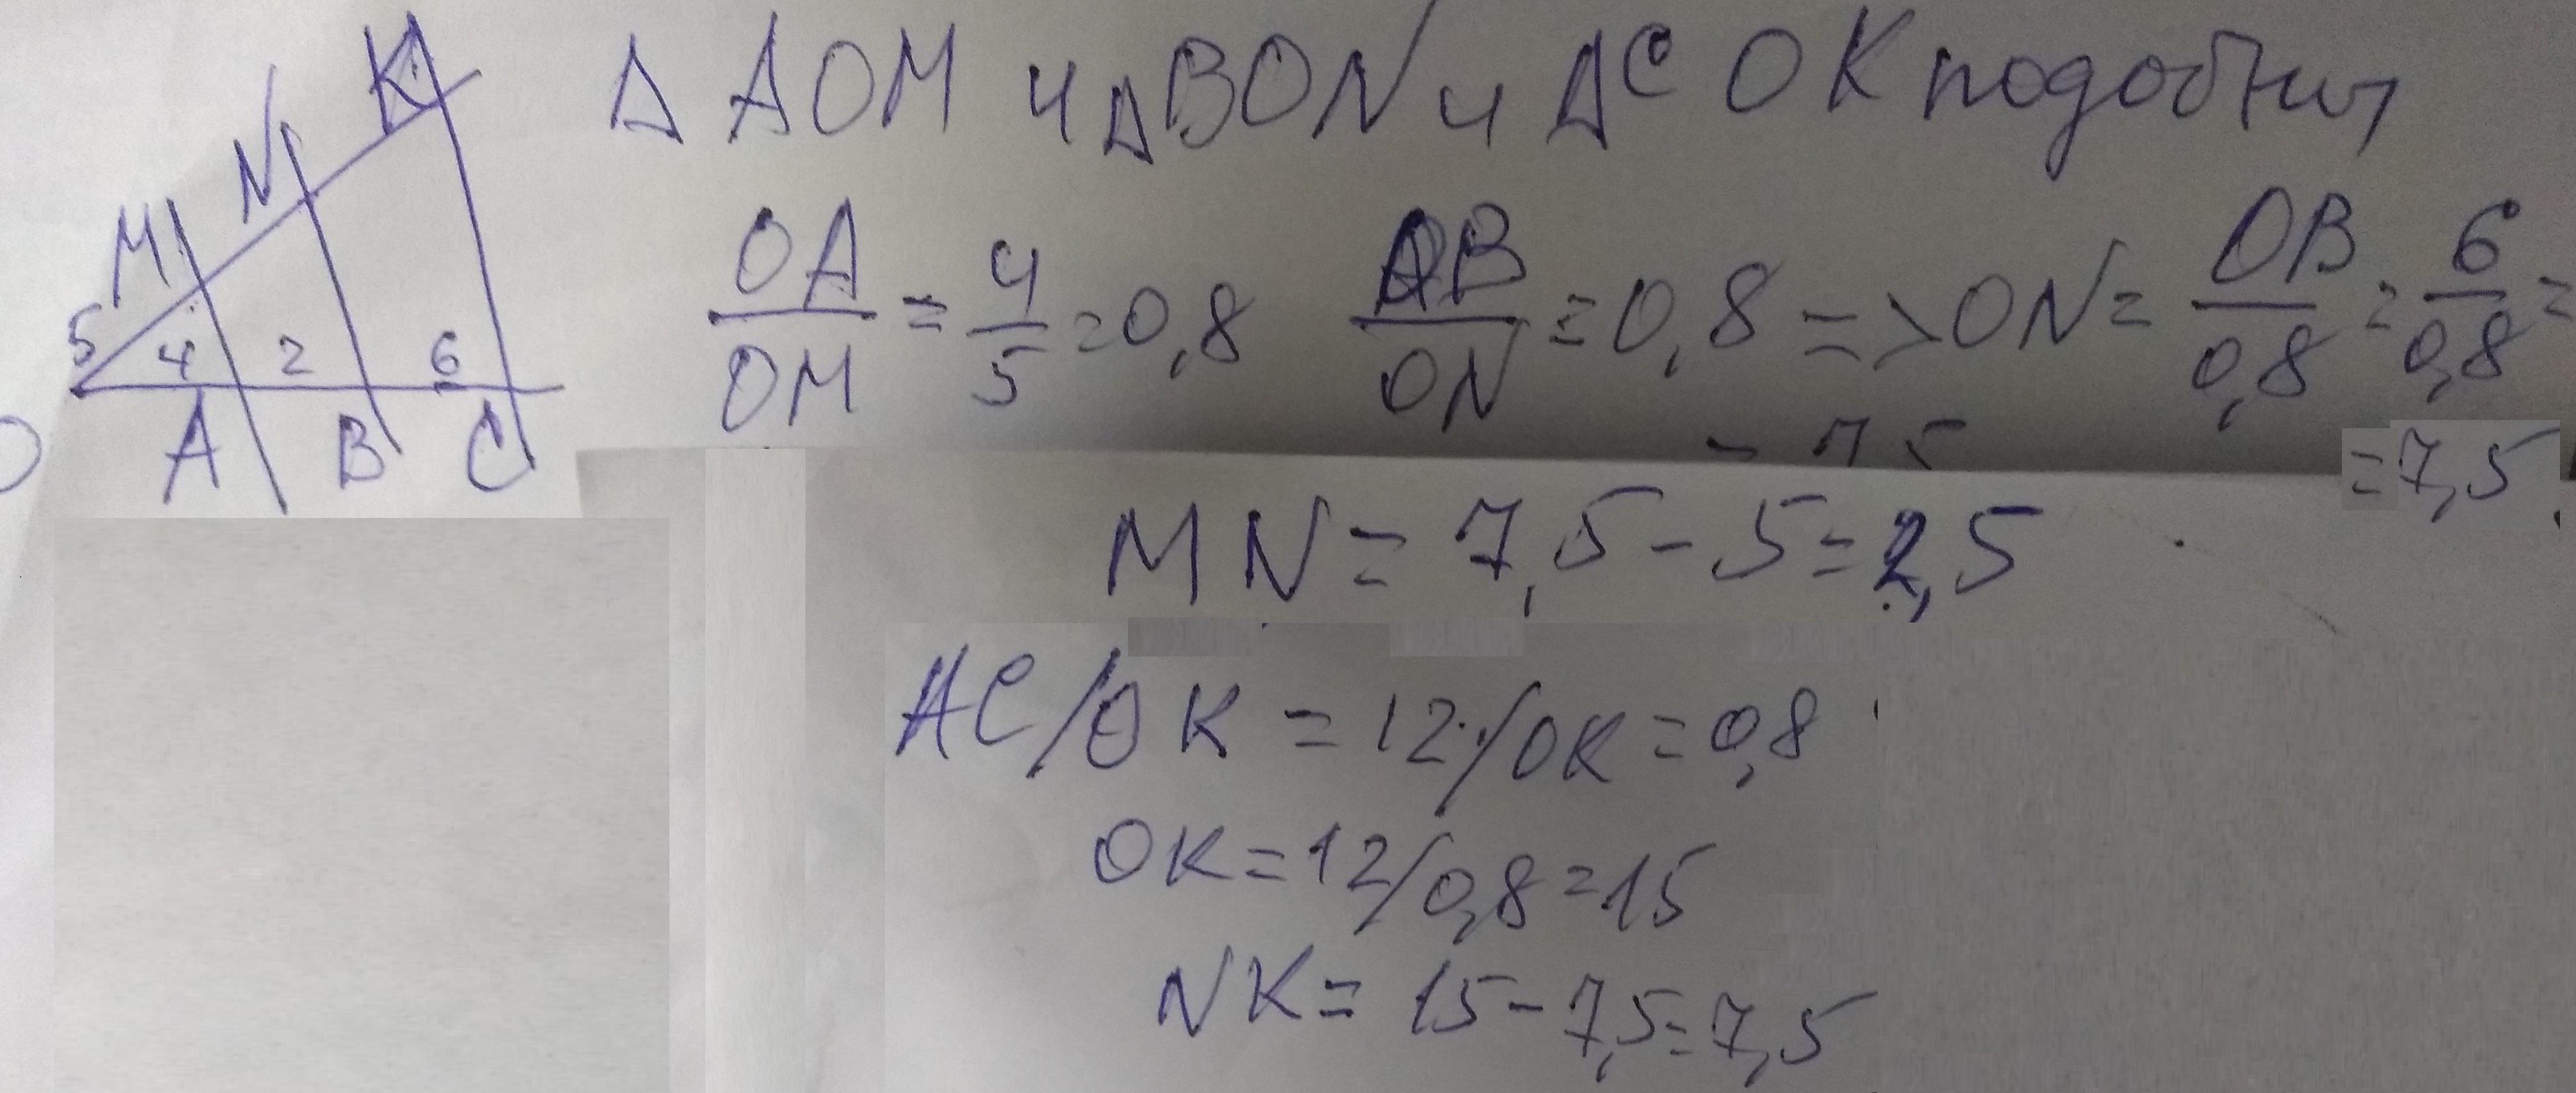 К
N
М
5
4 2 6
О А В С
Δ АОМ и Δ BON и Δ СОК подобны
OA/OM = 4/5 = 0,8 OB/ON = 0,8 => ON = OB/0,8 = 6/0,8 =
= 7,5
MN = 7,5 - 5 = 2,5
AC/OK = 12/OK = 0,8
OK = 12/0,8 = 15
NK = 15 - 7,5 = 7,5